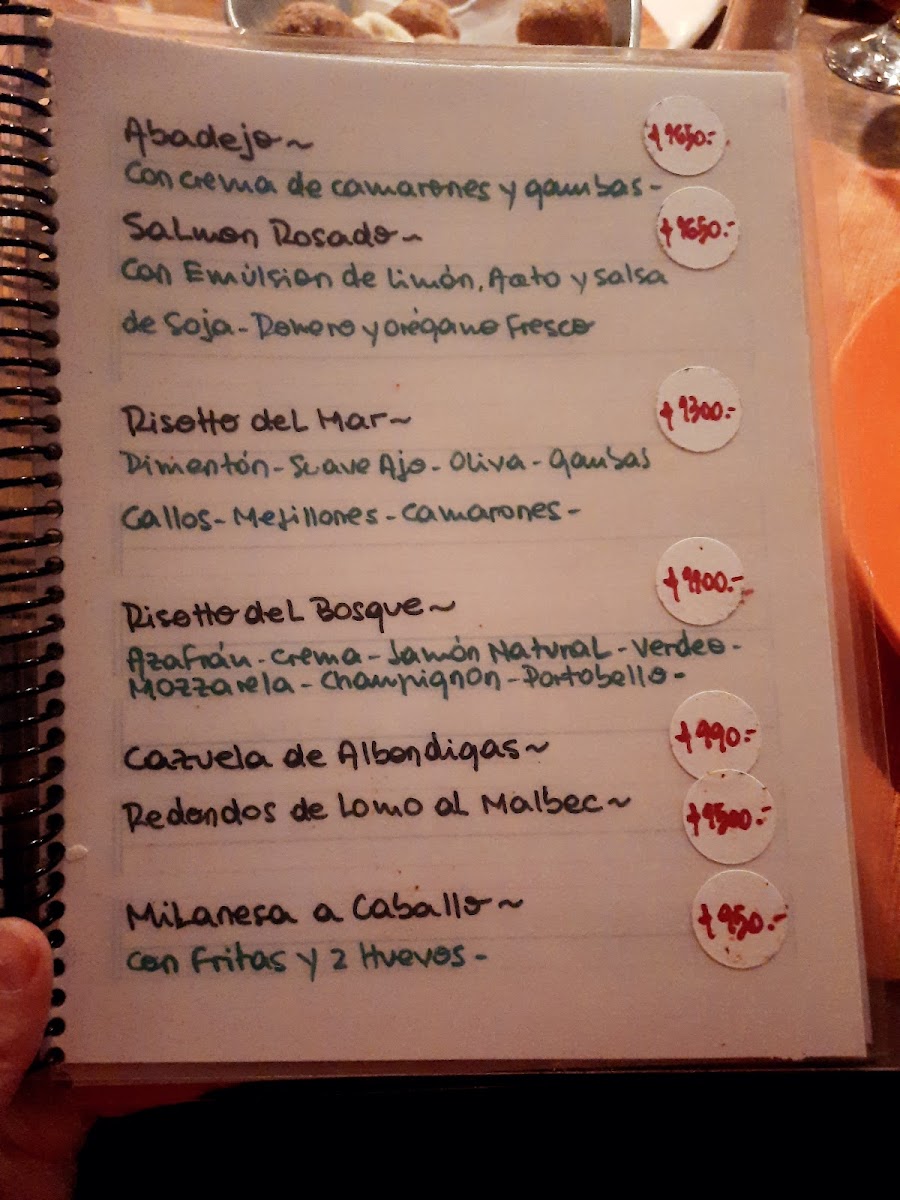 Abadejo~ $1650.-
Con crema de camarones y gambas-
Salmon Rosado~ $1650.-
Con Emúlsion de Limón, Aceto y salsa
de Soja-Romero y orégano Fresco
Risotto del Mar~ $1300.-
Pimentón-Suave Ajo-Oliva-gambas
Callos-Mejillones-Camarones-
Risotto del Bosque~ $1100.-
Azafrán-Crema-Jamón Natural-Verdeo-
Mozzarela-Champignon-Portobello-
Cazuela de Albondigas~ $990.-
Redondos de Lomo al Malbec~ $1500.-
Milanesa a Caballo~ $950.-
con Fritas y 2 Huevos-